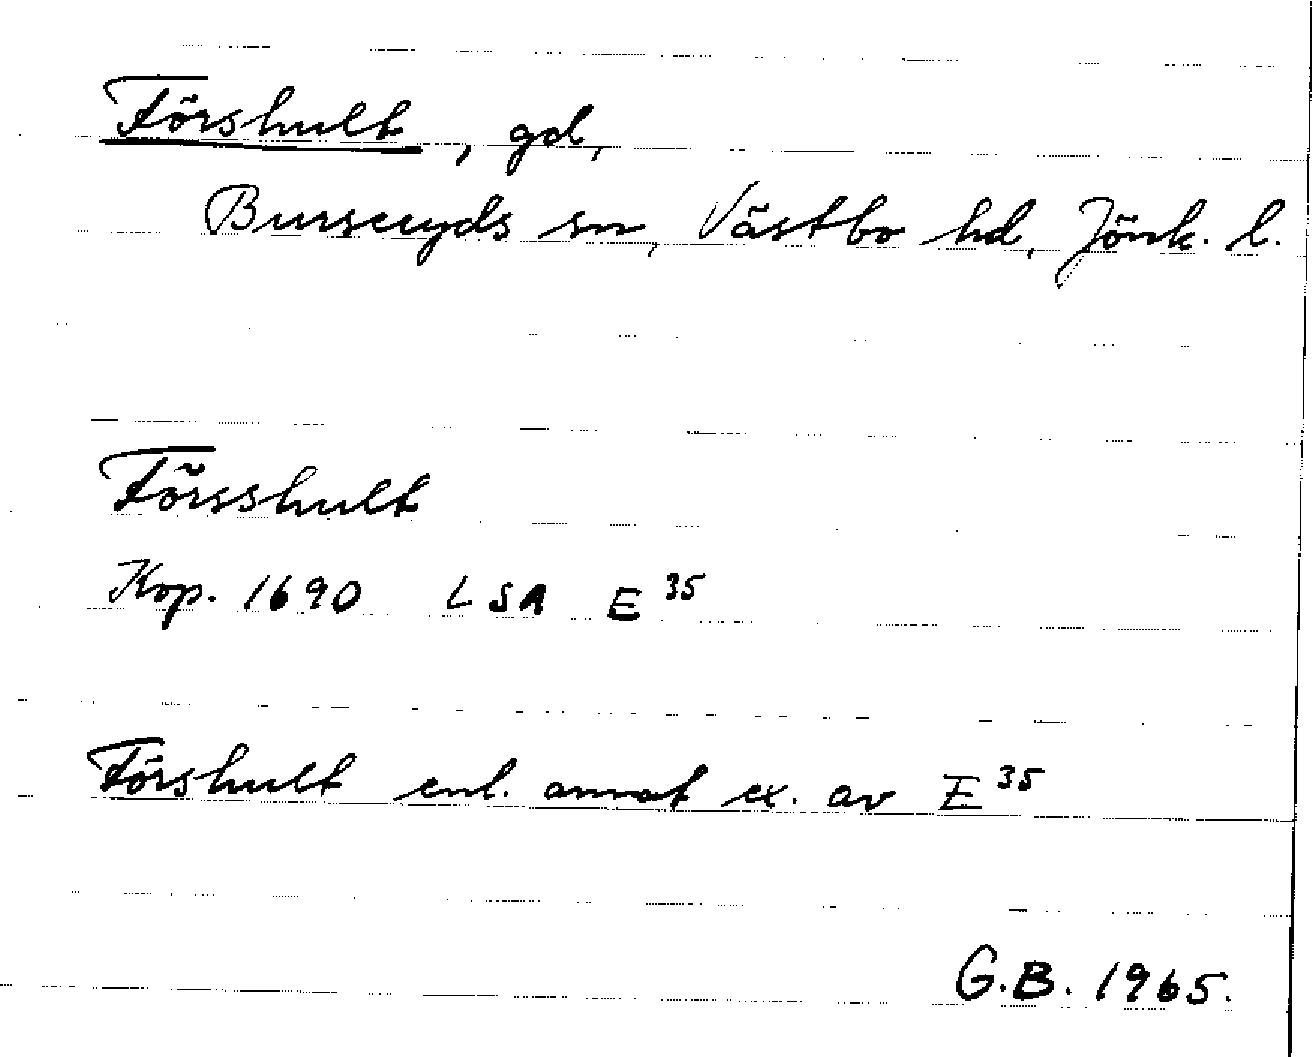 Förshult, gd,
Burseryds sn, Västbo hd, Jönk. l.
Försshult
Kop. 1690 LSA E 35
Förshult enl. annat ex. av E 35
G.B. 1965.